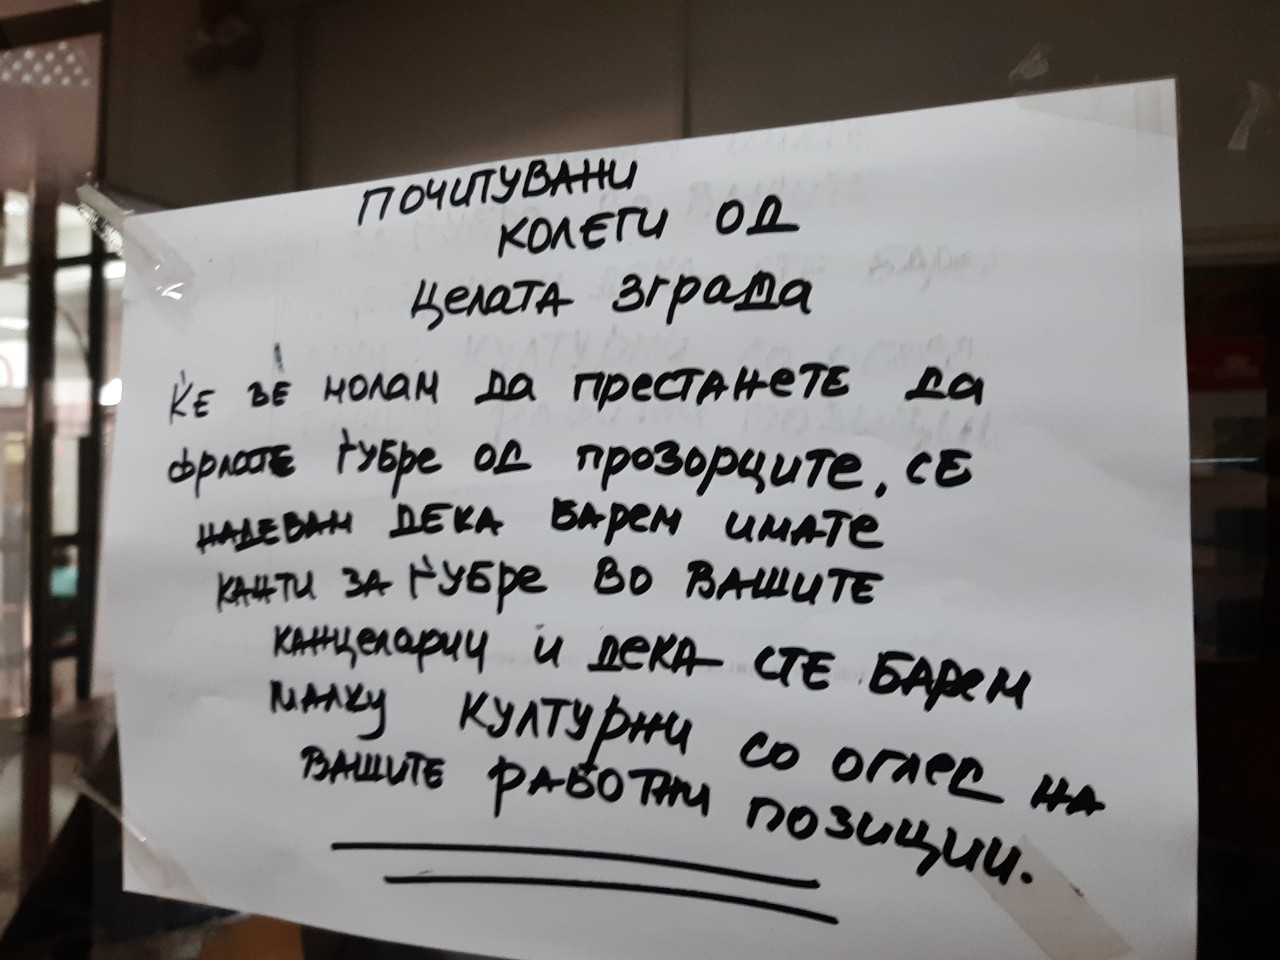 ПОЧИТУВАНИ
КОЛЕГИ ОД
ЦЕЛАТА ЗГРАДА
ЌЕ ВЕ МОЛАМ ДА ПРЕСТАНЕТЕ ДА
ФРЛАТЕ ЃУБРЕ ОД ПРОЗОРЦИТЕ, СЕ
НАДЕВАМ ДЕКА БАРЕМ ИМАТЕ
КАНТИ ЗА ЃУБРЕ ВО ВАШИТЕ
КАНЦЕЛАРИИ И ДЕКА СТЕ БАРЕМ
МАЛКУ КУЛТУРНИ СО ОГЛЕД НА
ВАШИТЕ РАБОТНИ ПОЗИЦИИ.